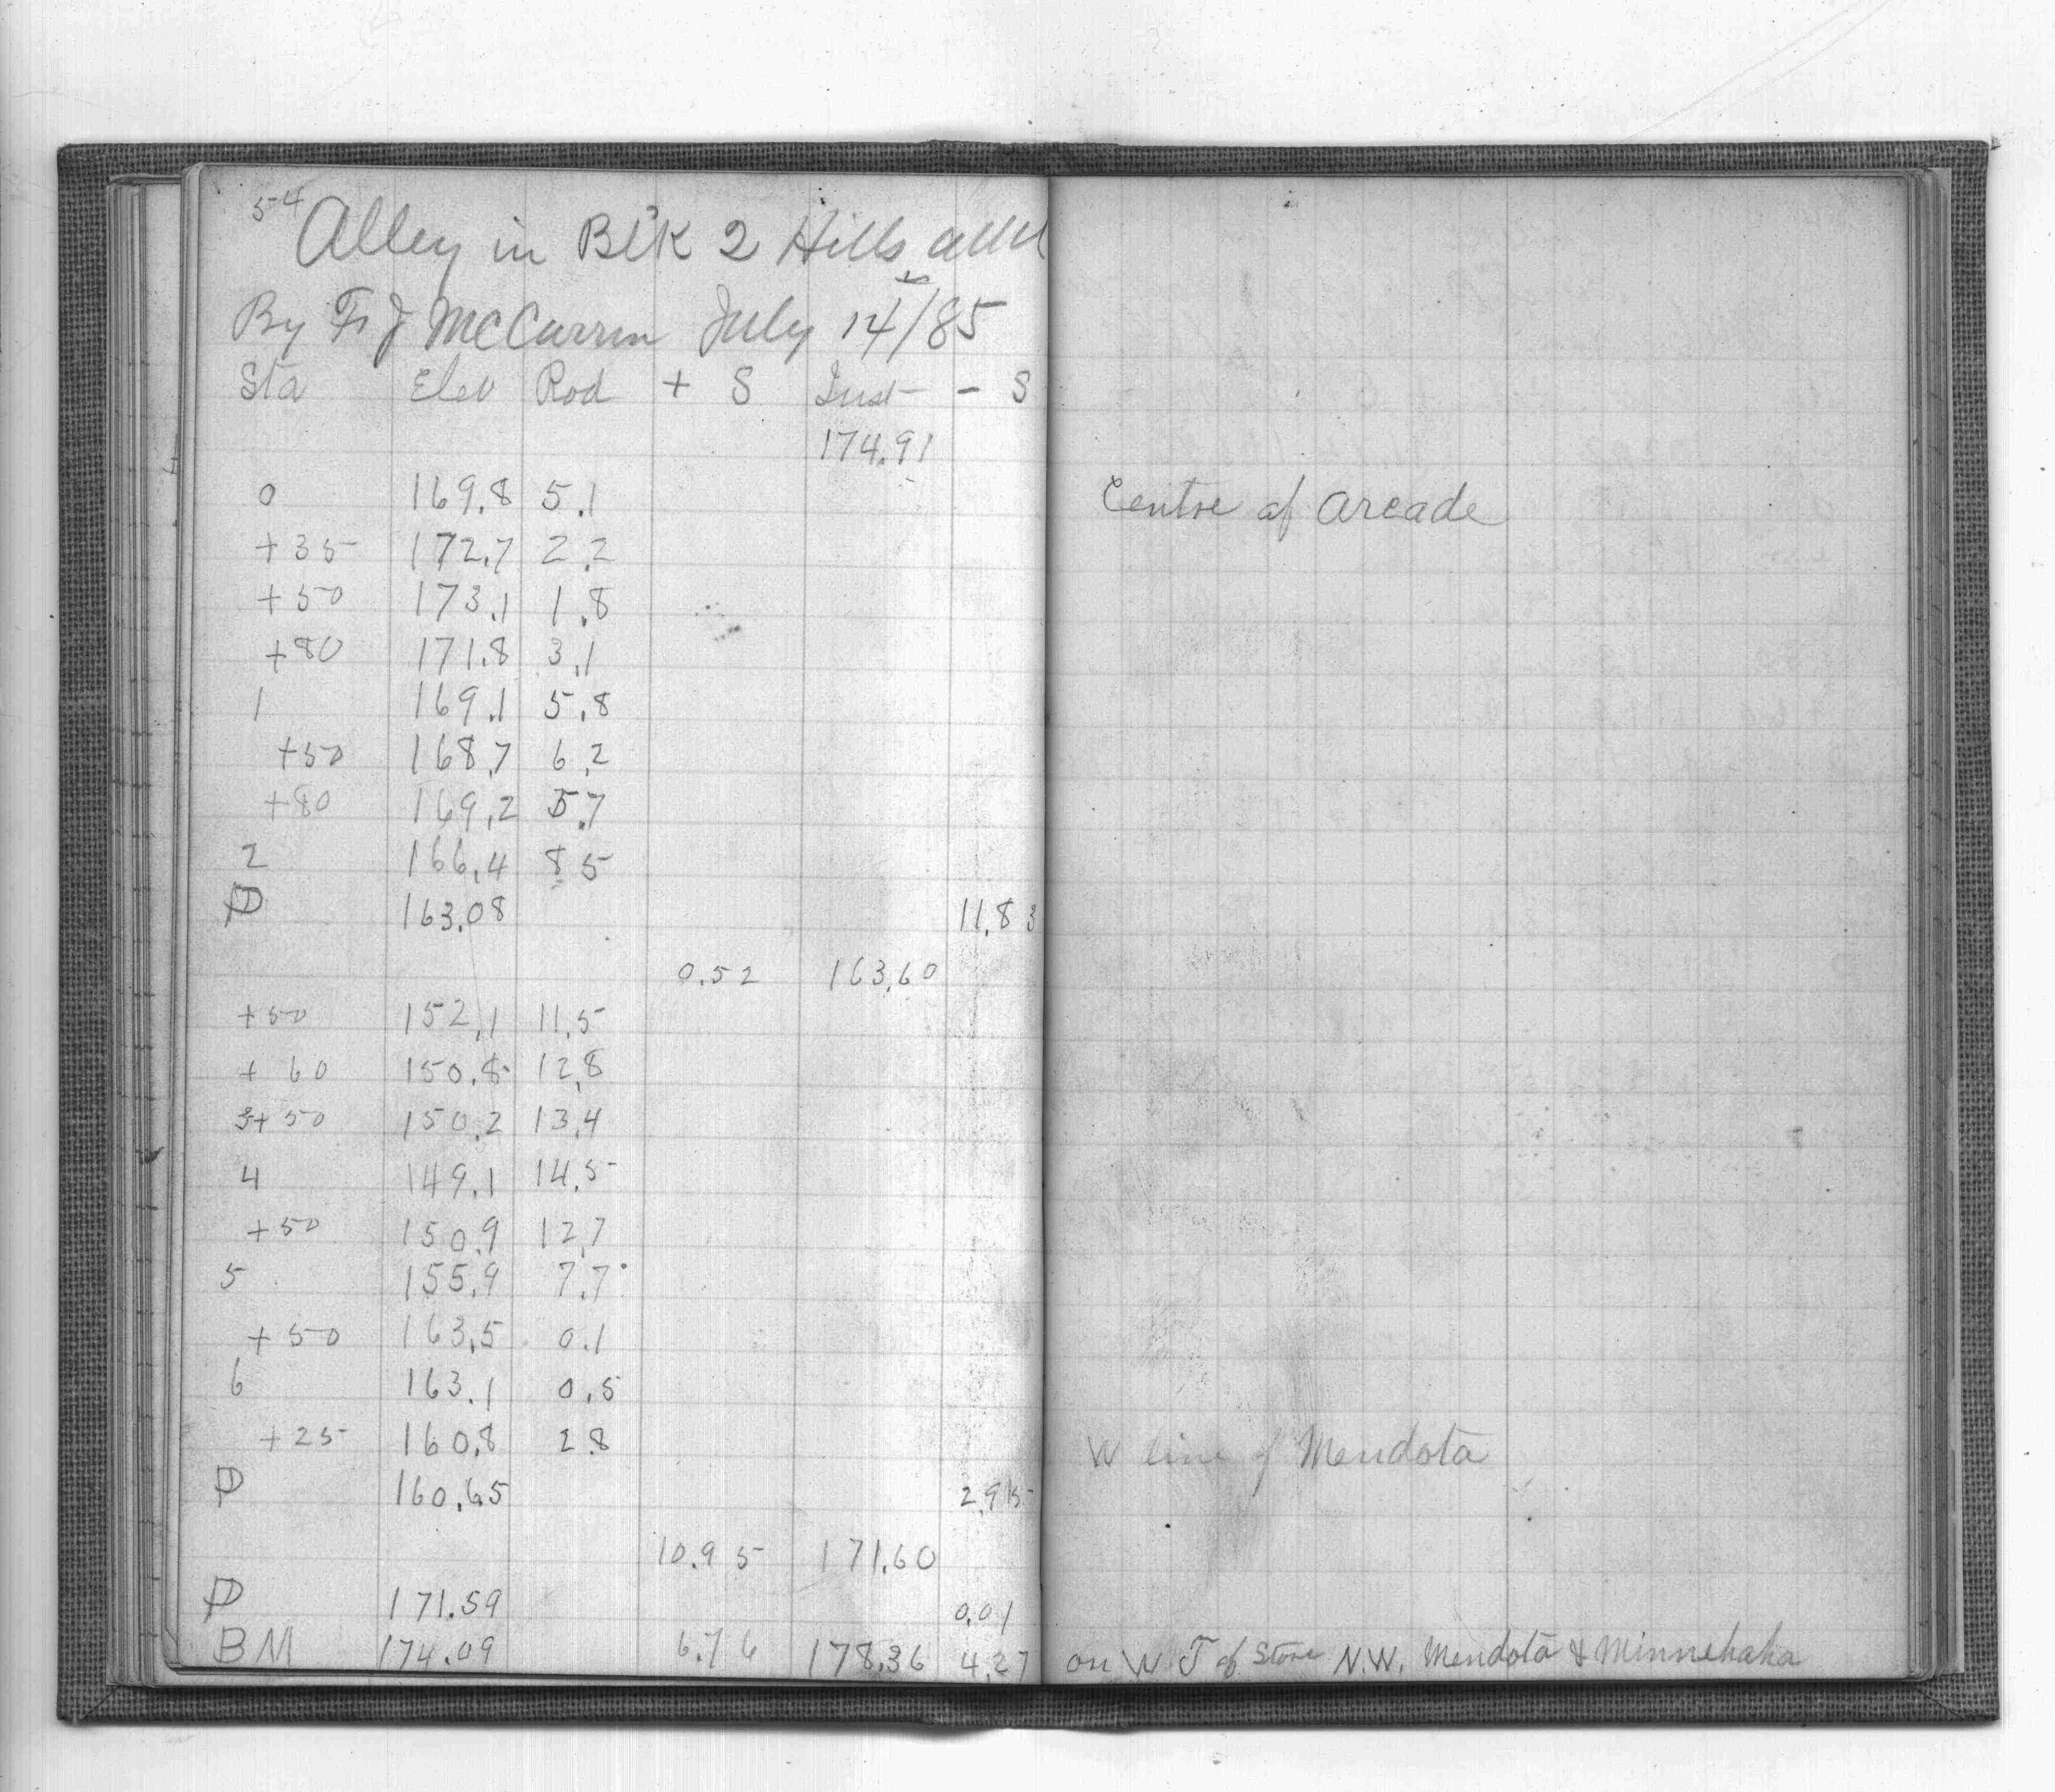 54
Alley in Blk 2 Hills add
By F J McCurren July 14/85
Sta Elev Rod + S Inst - S
174.91
0 169.8 5.1 Centre of Arcade
+35 172.7 2.2
+50 173.1 1.8
+80 171.8 3.1
1 169.1 5.8
+50 168.7 6.2
+80 169.2 5.7
2 166.4 8 5
P 163.08 11.83
0.52 163.60
+50 152.1 11.5
+ 60 150.8 12.8
3+50 150.2 13.4
4 149.1 14.5
+50 150.9 12.7
5 155.9 7.7
+50 163.5 0.1
6 163.1 0.5
+25 160.8 2.8 W line of Mendota
P 160.65 2.95
10.95 171.60
P 171.59 0.01
BM 174.09 6.76 178.36 4.27 on W. T of Store N.W. Mendota & Minnehaha